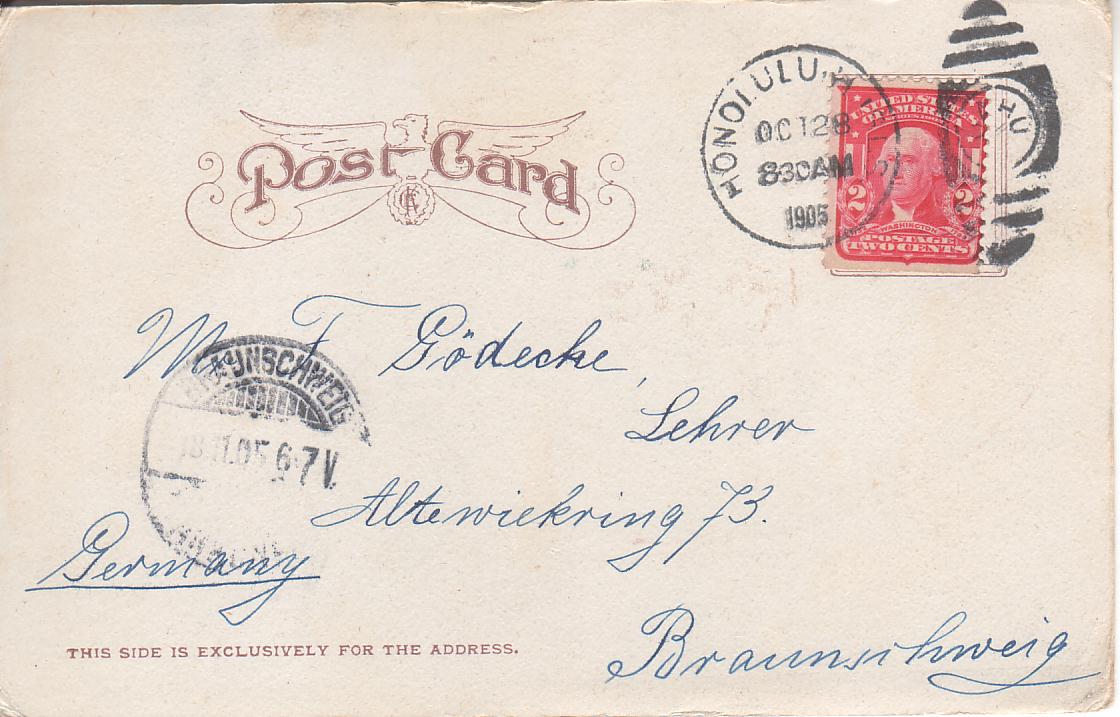 Post Card
HONOLULU, H
OCT 28
830AM
1905
UNITED STATES
OF AMERICA
2 2
WASHINGTON
POSTAGE
TWO CENTS
Mr F Gödecke,
BRAUNSCHWEIG
18.11.05 6-7 V.
Lehrer
Altewiekring 73.
Germany
THIS SIDE IS EXCLUSIVELY FOR THE ADDRESS.
Braunschweig